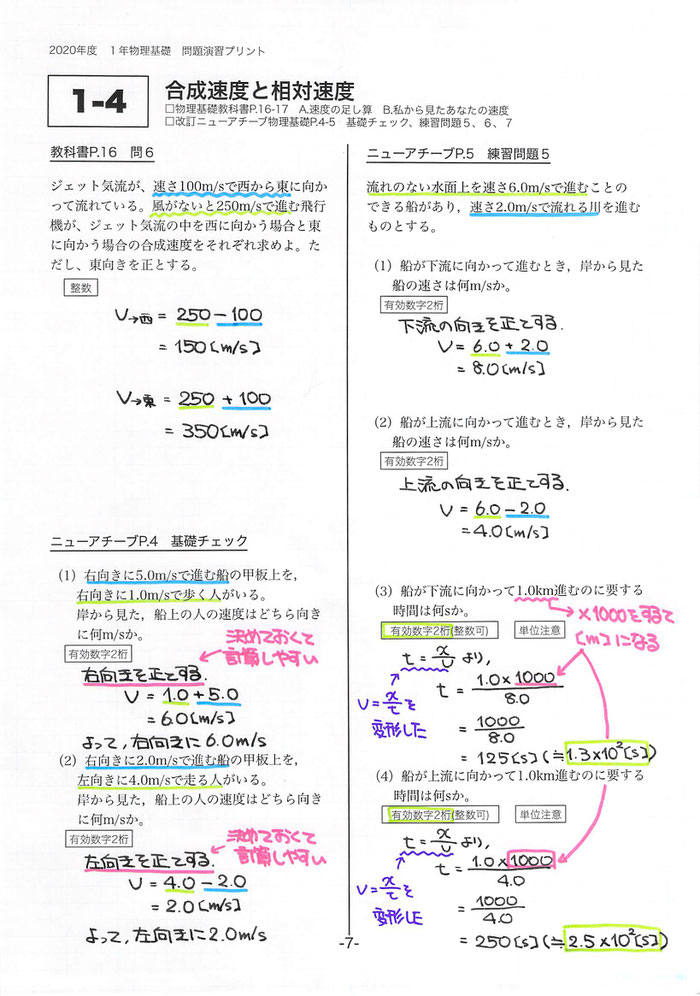 2020年度　1年物理基礎　問題演習プリント
1-4
合成速度と相対速度
□物理基礎教科書P.16-17　A.速度の足し算　B.私から見たあなたの速度
□改訂ニューアチーブ物理基礎P.4-5　基礎チェック、練習問題５、６、７
教科書P.16　問６
ジェット気流が、速さ100m/sで西から東に向か
って流れている。風がないと250m/sで進む飛行
機が、ジェット気流の中を西に向かう場合と東
に向かう場合の合成速度をそれぞれ求めよ。た
だし、東向きを正とする。
整数
V→西 = 250 - 100
= 150 [m/s]
V→東 = 250 + 100
= 350 [m/s]
ニューアチーブP.4　基礎チェック
(1) 右向きに5.0m/sで進む船の甲板上を，
右向きに1.0m/sで歩く人がいる。
岸から見た，船上の人の速度はどちら向き
に何m/sか。
有効数字2桁
決めておくて
計算しやすい
右向きを正とする.
V = 1.0 + 5.0
= 6.0 [m/s]
よって, 右向きに 6.0m/s
(2) 右向きに2.0m/sで進む船の甲板上を，
左向きに4.0m/sで走る人がいる。
岸から見た，船上の人の速度はどちら向き
に何m/sか。
有効数字2桁
決めておくて
計算しやすい
左向きを正とする.
V = 4.0 - 2.0
= 2.0 [m/s]
よって, 左向きに 2.0m/s
ニューアチーブP.5　練習問題５
流れのない水面上を速さ6.0m/sで進むことの
できる船があり，速さ2.0m/sで流れる川を進む
ものとする。
(1) 船が下流に向かって進むとき，岸から見た
船の速さは何m/sか。
有効数字2桁
下流の向きを正とする.
V = 6.0 + 2.0
= 8.0 [m/s]
(2) 船が上流に向かって進むとき，岸から見た
船の速さは何m/sか。
有効数字2桁
上流の向きを正とする.
V = 6.0 - 2.0
= 4.0 [m/s]
(3) 船が下流に向かって1.0km進むのに要する
時間は何sか。
×1000をするて
[m]になる
有効数字2桁(整数可)　単位注意
t = x/v より,
V = x/t を
変形した
t = 1.0×1000/8.0
= 1000/8.0
= 125 [s] (≒ 1.3×10² [s])
(4) 船が上流に向かって1.0km進むのに要する
時間は何sか。
有効数字2桁(整数可)　単位注意
t = x/v より,
V = x/t を
変形した
t = 1.0×1000/4.0
= 1000/4.0
= 250 [s] (≒ 2.5×10² [s])
-7-